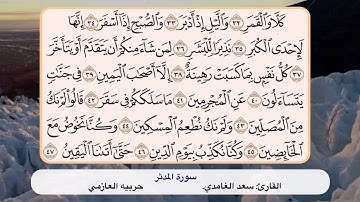 كَلَّا وَٱلْقَمَرِ ٣٢ وَٱلَّيْلِ إِذْ أَدْبَرَ ٣٣ وَٱلصُّبْحِ إِذَآ أَسْفَرَ ٣٤ إِنَّهَا
لَإِحْدَى ٱلْكُبَرِ ٣٥ نَذِيرًا لِّلْبَشَرِ ٣٦ لِمَن شَآءَ مِنكُمْ أَن يَتَقَدَّمَ أَوْ يَتَأَخَّرَ
٣٧ كُلُّ نَفْسٍۭ بِمَا كَسَبَتْ رَهِينَةٌ ٣٨ إِلَّآ أَصْحَٰبَ ٱلْيَمِينِ ٣٩ فِى جَنَّٰتٍ
يَتَسَآءَلُونَ ٤٠ عَنِ ٱلْمُجْرِمِينَ ٤١ مَا سَلَكَكُمْ فِى سَقَرَ ٤٢ قَالُوا۟ لَمْ نَكُ
مِنَ ٱلْمُصَلِّينَ ٤٣ وَلَمْ نَكُ نُطْعِمُ ٱلْمِسْكِينَ ٤٤ وَكُنَّا نَخُوضُ مَعَ
ٱلْخَآئِضِينَ ٤٥ وَكُنَّا نُكَذِّبُ بِيَوْمِ ٱلدِّينِ ٤٦ حَتَّىٰٓ أَتَىٰنَا ٱلْيَقِينُ ٤٧
سورة المدثر
القارئ: سعد الغامدي. حربيه العازمي